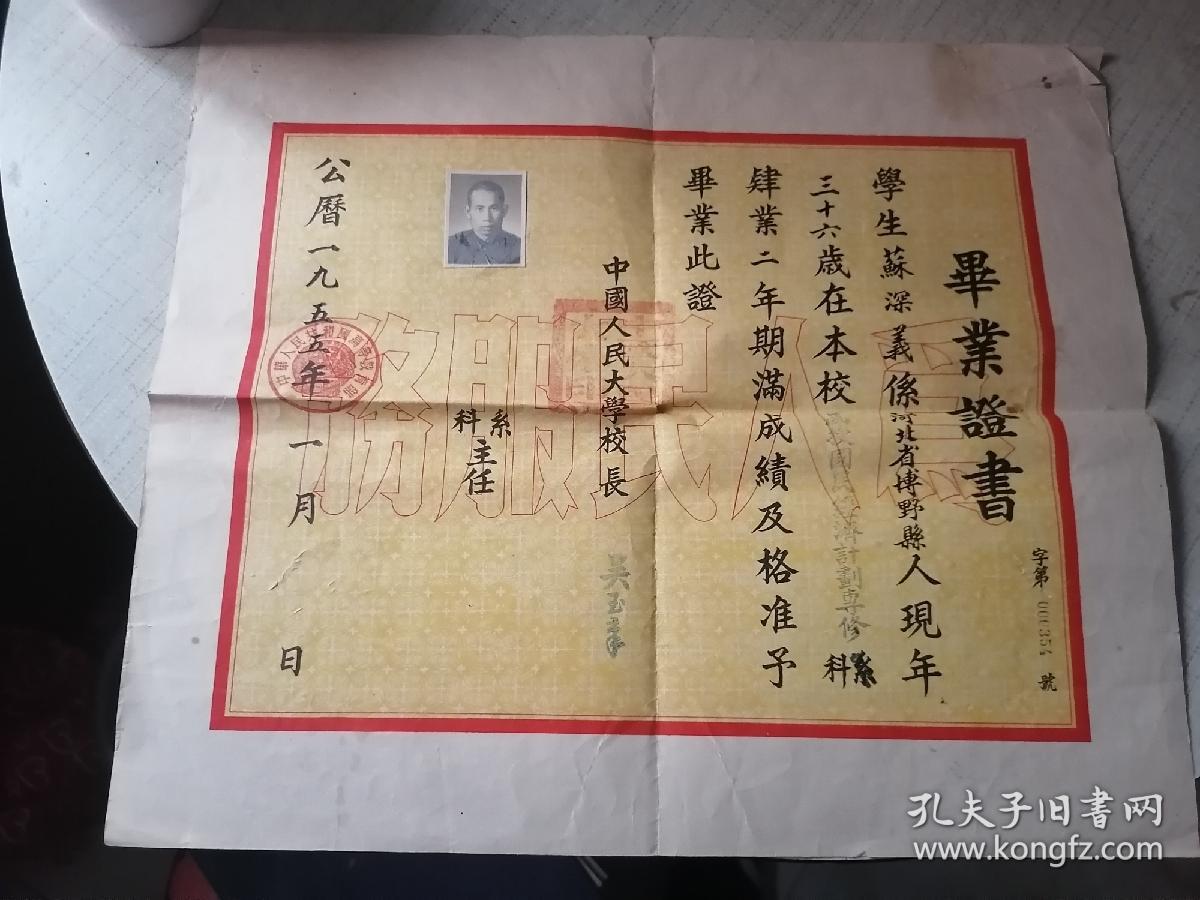 畢業證書
字第 號
學生蘇深義係河北省博野縣人現年
三十六歲在本校國民經濟計劃專修科
肄業二年期滿成績及格准予
畢業此證
中國人民大學校長 吳玉章
系科主任
公曆一九五五年一月 日
為人民服務
中華人民共和國高等教育部
孔夫子旧书网
www.kongfz.com